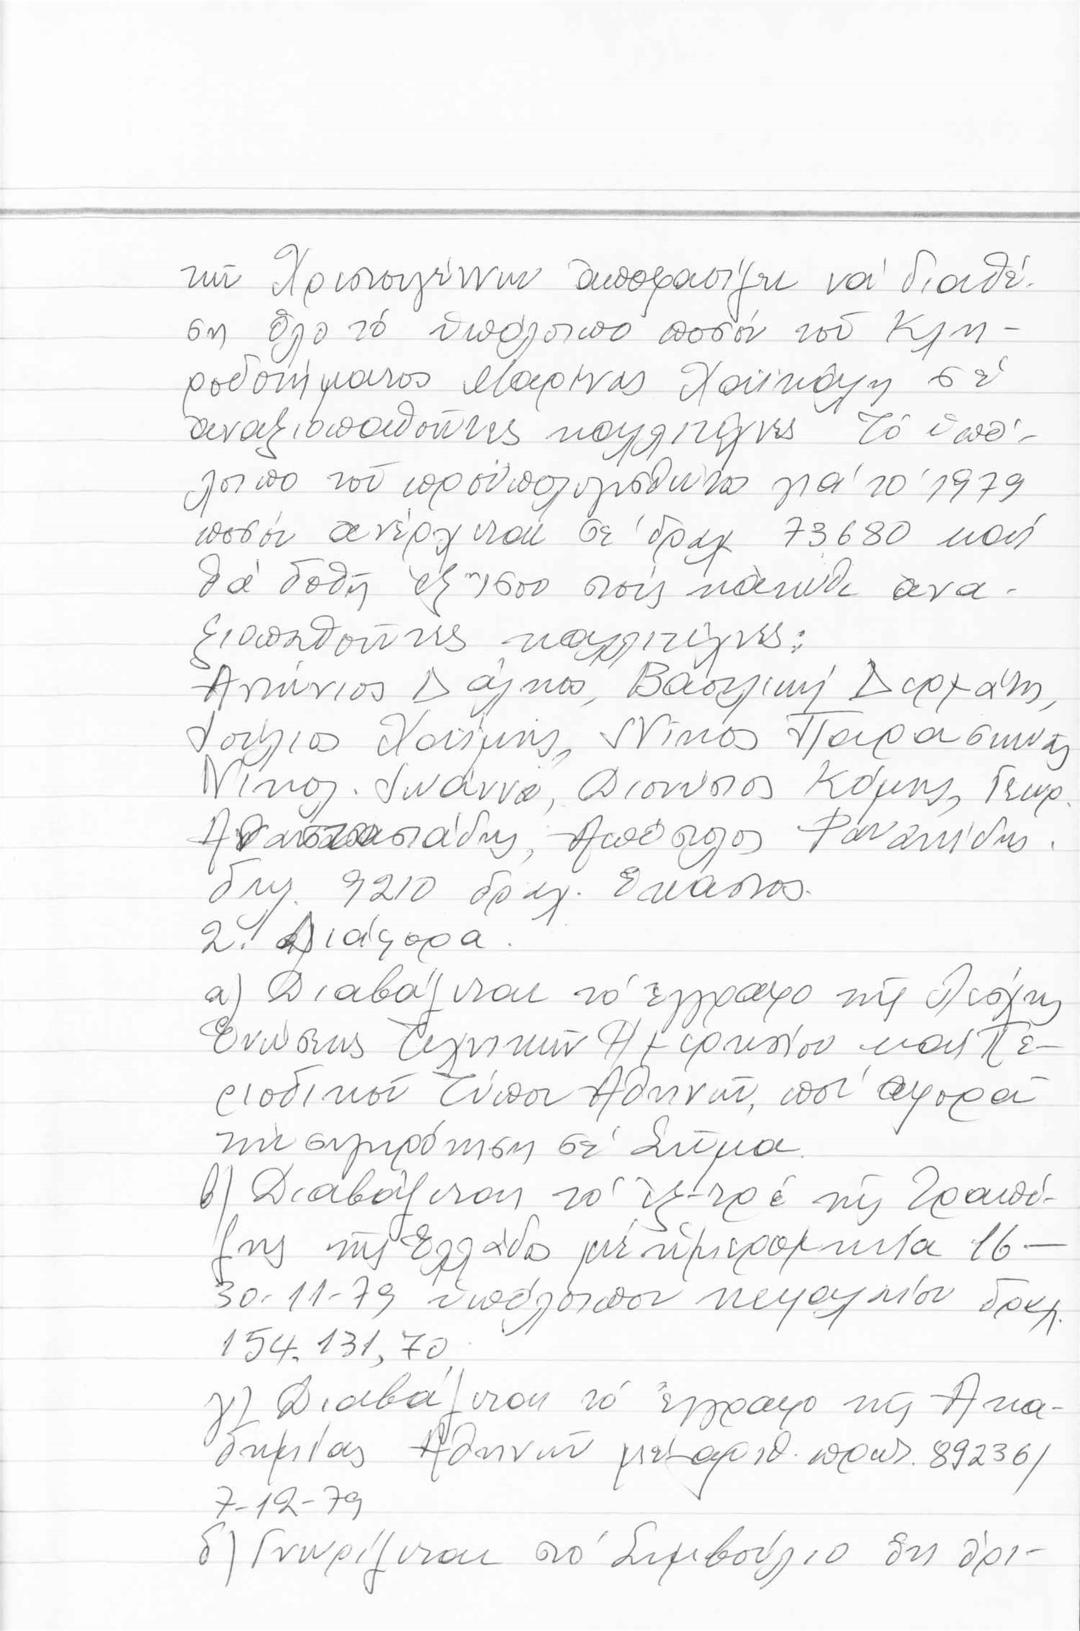 τῶν Χριστουγέννων ἀποφασίζει νά διαθέ-
ση ὅλο τό ὑπόλοιπο ποσόν τοῦ Κλη-
ροδοτήματος Μαρίνας Χατζηκάλη σέ
ἀναξιοπαθοῦντες καλλιτέχνες Τό ὑπό-
λοιπο τοῦ προϋπολογισθέντος γιά τό 1979
ποσόν ἀνέρχεται σέ δραχ 73680 καί
θά δοθῆ ἐξ ἴσου στούς κάτωθι ἀνα-
ξιοπαθοῦντες καλλιτέχνες:
Ἀντώνιος Δάλκος, Βασιλική Δερμάτη,
Ἰούλιος Χαΐμης, Νίκος Παρασκευᾶς
Νικολ. Ἰωάννου, Διονύσιος Κόμης, Γεωρ.
Ἀναστασιάδης, Ἀπόστολος Φανακίδης.
δηλ. 9210 δραχ. ἕκαστος.
2. Διάφορα.
α) Διαβάζεται τό ἔγγραφο τῆς Λέσχης
Ἑνώσεως Τεχνικῶν Ἡμερησίου καί Πε-
ριοδικοῦ Τύπου Ἀθηνῶν, πού ἀφορᾶ
τήν συγκρότηση σέ Σῶμα.
β) Διαβάζεται τό ἐξ-τρέ τῆς Τραπέ-
ζης τῆς Ἑλλάδος μέ ἡμερομηνία 16-
30-11-79 ὑπόλοιπον κεφαλαίου δραχ.
154.131,70
γ) Διαβάζεται τό ἔγγραφο τῆς Ἀκα-
δημίας Ἀθηνῶν μέ ἀριθ. πρωτ. 89236/
7-12-79
δ) Γνωρίζεται στό Συμβούλιο ὅτι ὁρι-